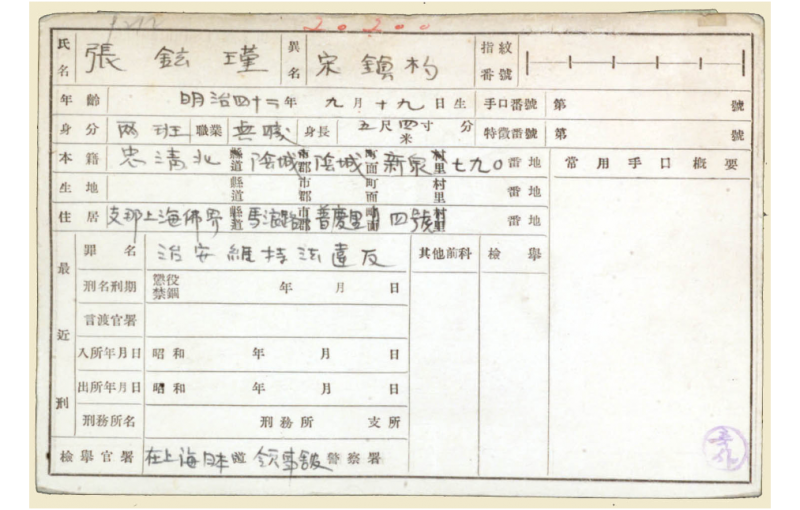 20200
氏名 張鉉瑾 異名 宋鎮杓 指紋番號
年齡 明治四十二年 九月十九日生 手口番號 第 號
身分 両班 職業 無職 身長 五尺四寸 分 米 特徵番號 第 號
本籍 忠淸北 縣道 陰城 市郡 陰城 町面 新泉 村里 七九〇 番地 常用手口概要
生地 縣道 市郡 町面 村里 番地
住居 支那上海佛界 縣道 馬浪路 市郡 普慶里 町面 四號 村里 番地
最近刑 罪名 治安維持法違反 其他前科 檢擧
刑名刑期 懲役 禁錮 年 月 日
言渡官署
入所年月日 昭和 年 月 日
出所年月日 昭和 年 月 日
刑務所名 刑務所 支所
檢擧官署 在上海日本總領事館警察署